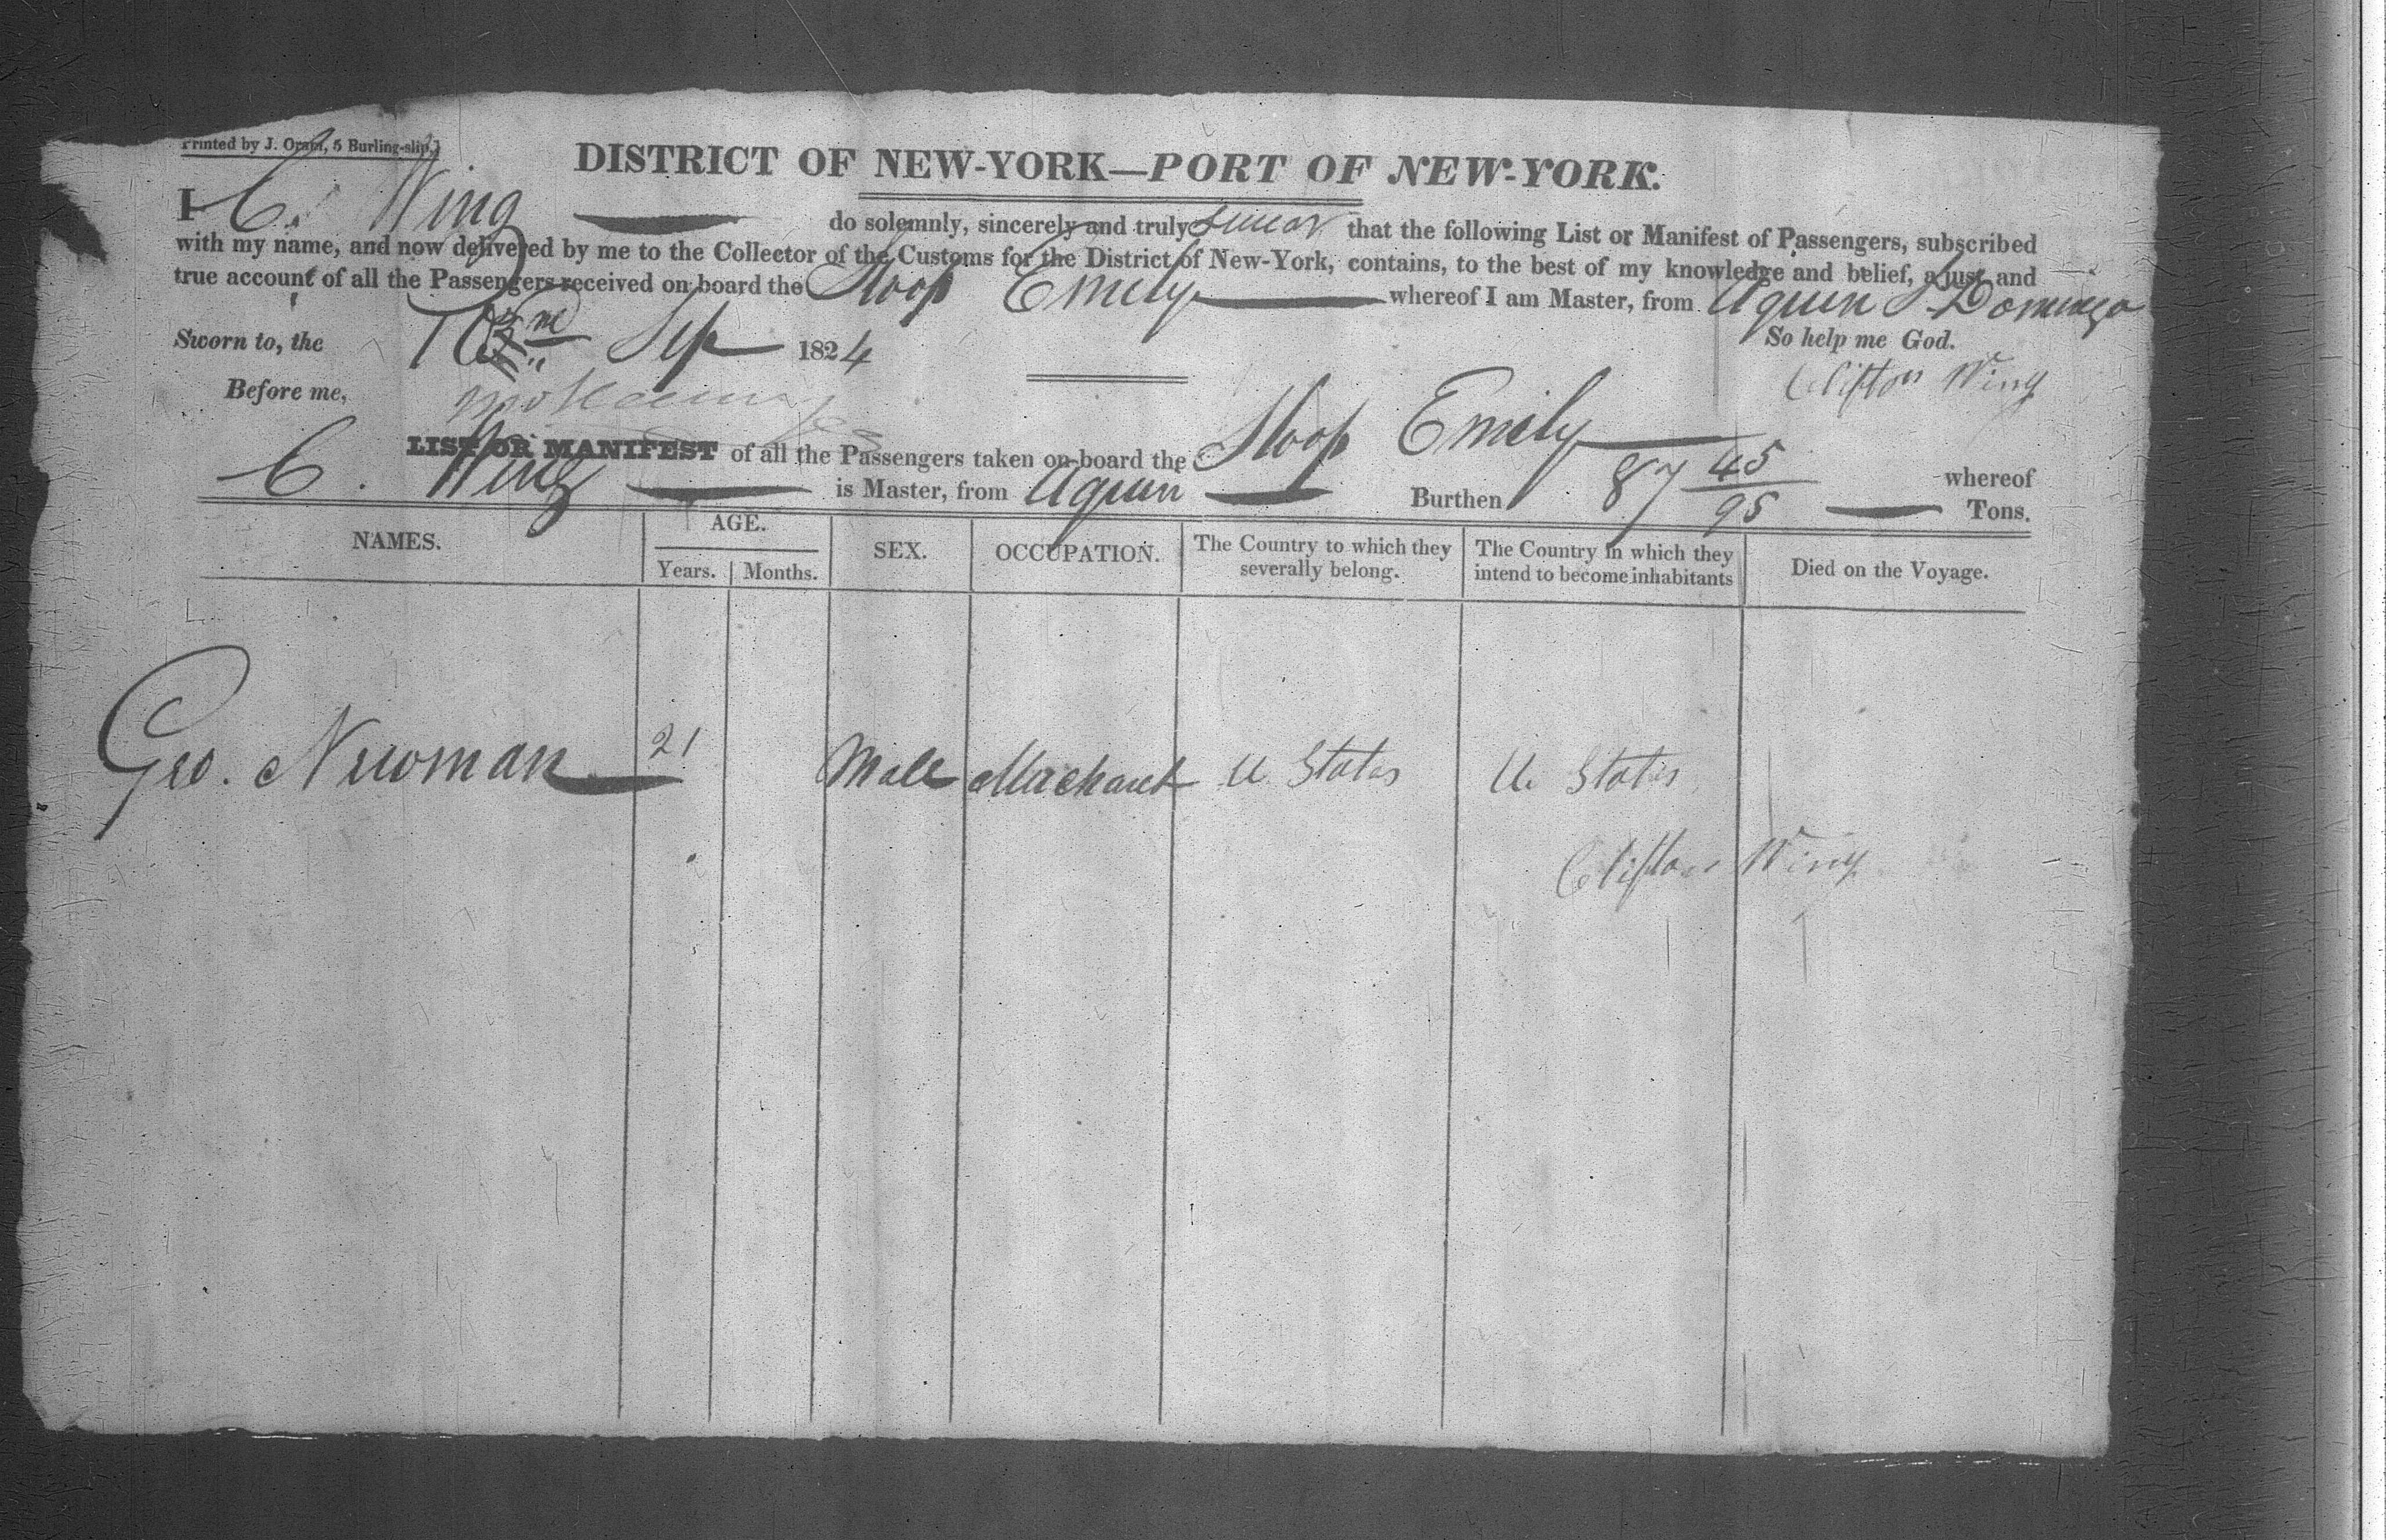 Printed by J. Oram, 5 Burling-slip.
DISTRICT OF NEW-YORK—PORT OF NEW-YORK.
I C. Wing do solemnly, sincerely and truly swear that the following List or Manifest of Passengers, subscribed
with my name, and now delivered by me to the Collector of the Customs for the District of New-York, contains, to the best of my knowledge and belief, a just and
true account of all the Passengers received on board the Sloop Emily whereof I am Master, from Aquin St Domingo
Sworn to, the Sep 1824 So help me God.
Before me, Clifton Wing
LIST OR MANIFEST of all the Passengers taken on board the Sloop Emily whereof
C. Wing is Master, from Aquin Burthen 87 45/95 Tons.
NAMES. AGE. SEX. OCCUPATION. The Country to which they severally belong. The Country in which they intend to become inhabitants Died on the Voyage.
Years. Months.
Geo. Newman 21 Male Merchant U. States U. States
Clifton Wing